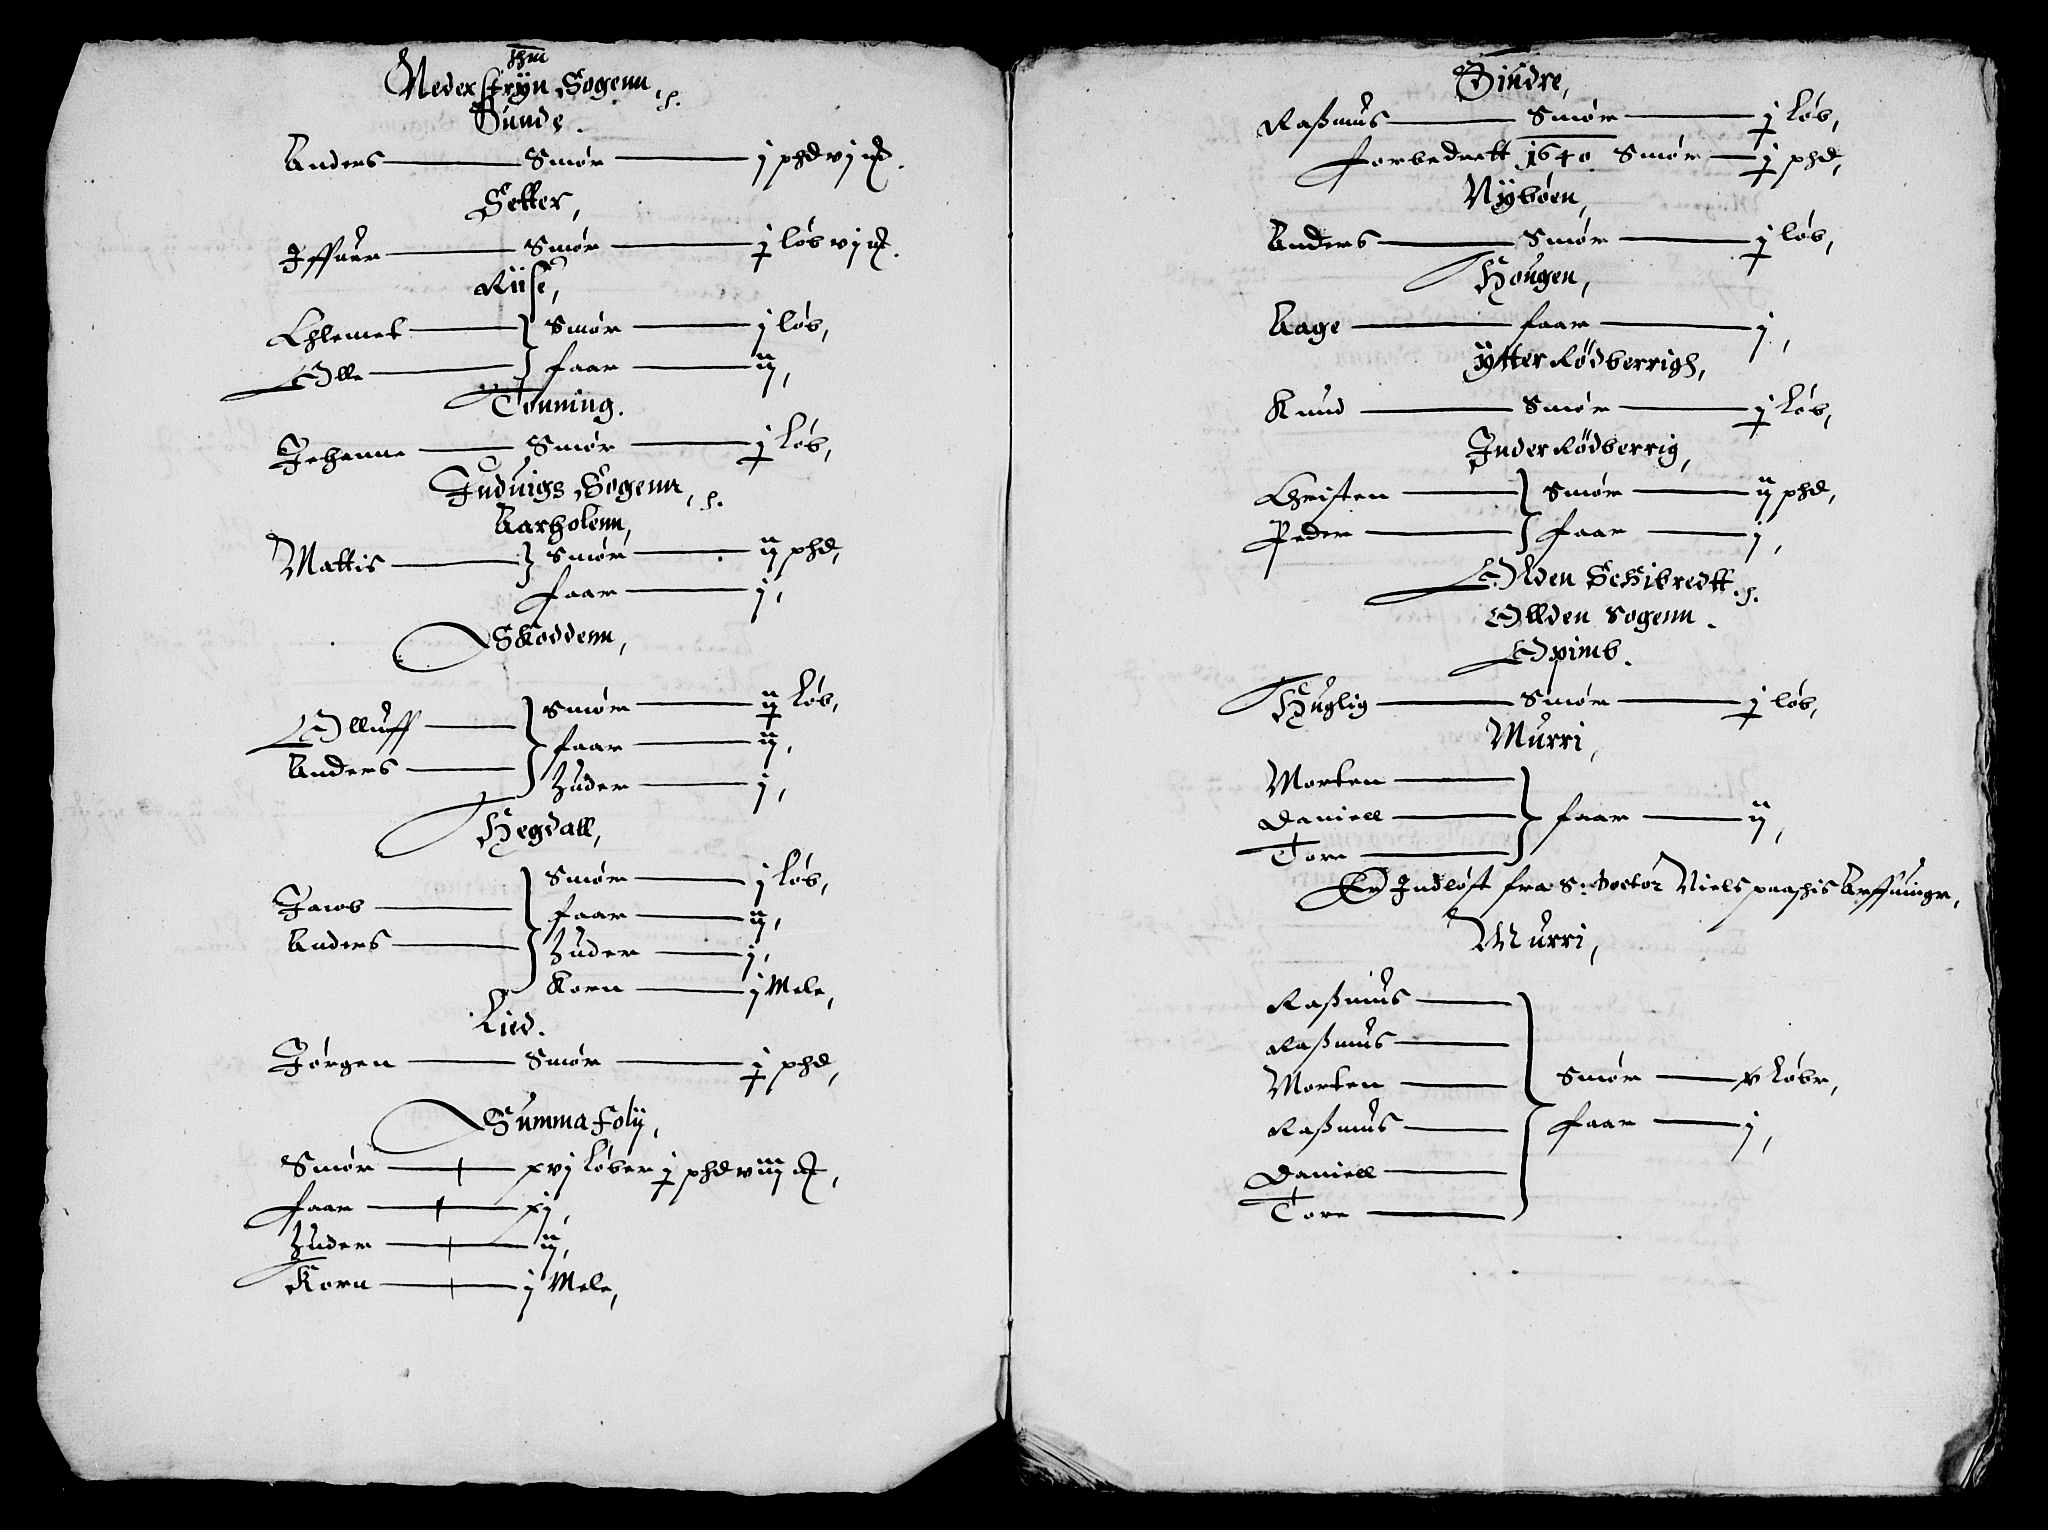 Nederstryn Sogenn
Sunde.
Anders — Smør — j phd vj
Setter,
Iffuer — Smør — j løb vj
Riise,
Chlemet — Smør — j løb,
Olle — faar — ij,
Tonning.
Johanne — Smør — j løb,
Induigs Sogenn,
Aarholenn,
Mattis — Smør — ij phd,
faar — j,
Skoddenn,
Olluff — Smør — ij løb,
faar — ij,
Anders — huder — j,
Hegdall,
Smør — j løb,
Jacob — faar — ij,
Anders — huder — j,
Korn — j Mele,
Lied.
Jørgen — Smør — j phd,
Summa foly,
Smør — xvj løber j phd viij
faar — xj,
huder — ij,
Korn — j Mele,
Sindre,
Rasmus — Smør — j løb,
forbedrett 1640 Smør — j phd,
Nybøen,
Anders — Smør — j løb,
Hougen,
Aage — faar — j,
Ytter Rødberrigh,
Knud — Smør — j løb,
Inder Rødberrig,
Christen — Smør — ij phd,
Peder — faar — j,
Olden Schibredt
Ollden Sogenn.
Opimb.
Huglig — Smør — j løb,
Murri,
Morten
Daniell — faar — ij,
Tore
Er Indløst fra S: Doctor Niels paaskis Arffuinge,
Murri,
Rasmus
Rasmus
Morten — Smør — v løbe,
Rasmus — faar — j,
Daniell
Tore